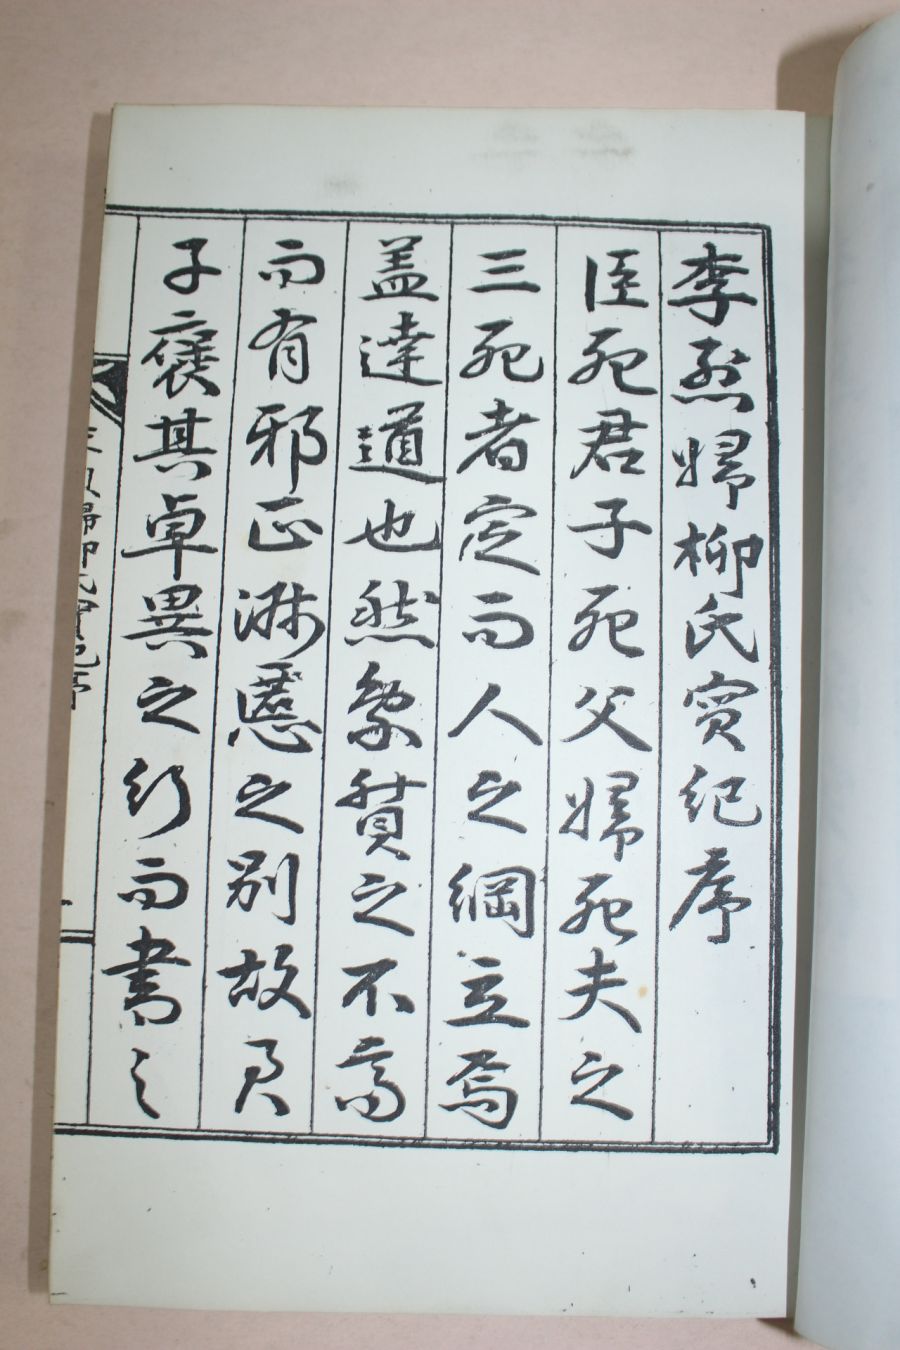 李烈婦柳氏實紀序
臣死君子死父婦死夫之
三死者定而人之綱立焉
盖達道也然氣質之不齊
而有邪正淑慝之別故君
子褒其卓異之行而書之